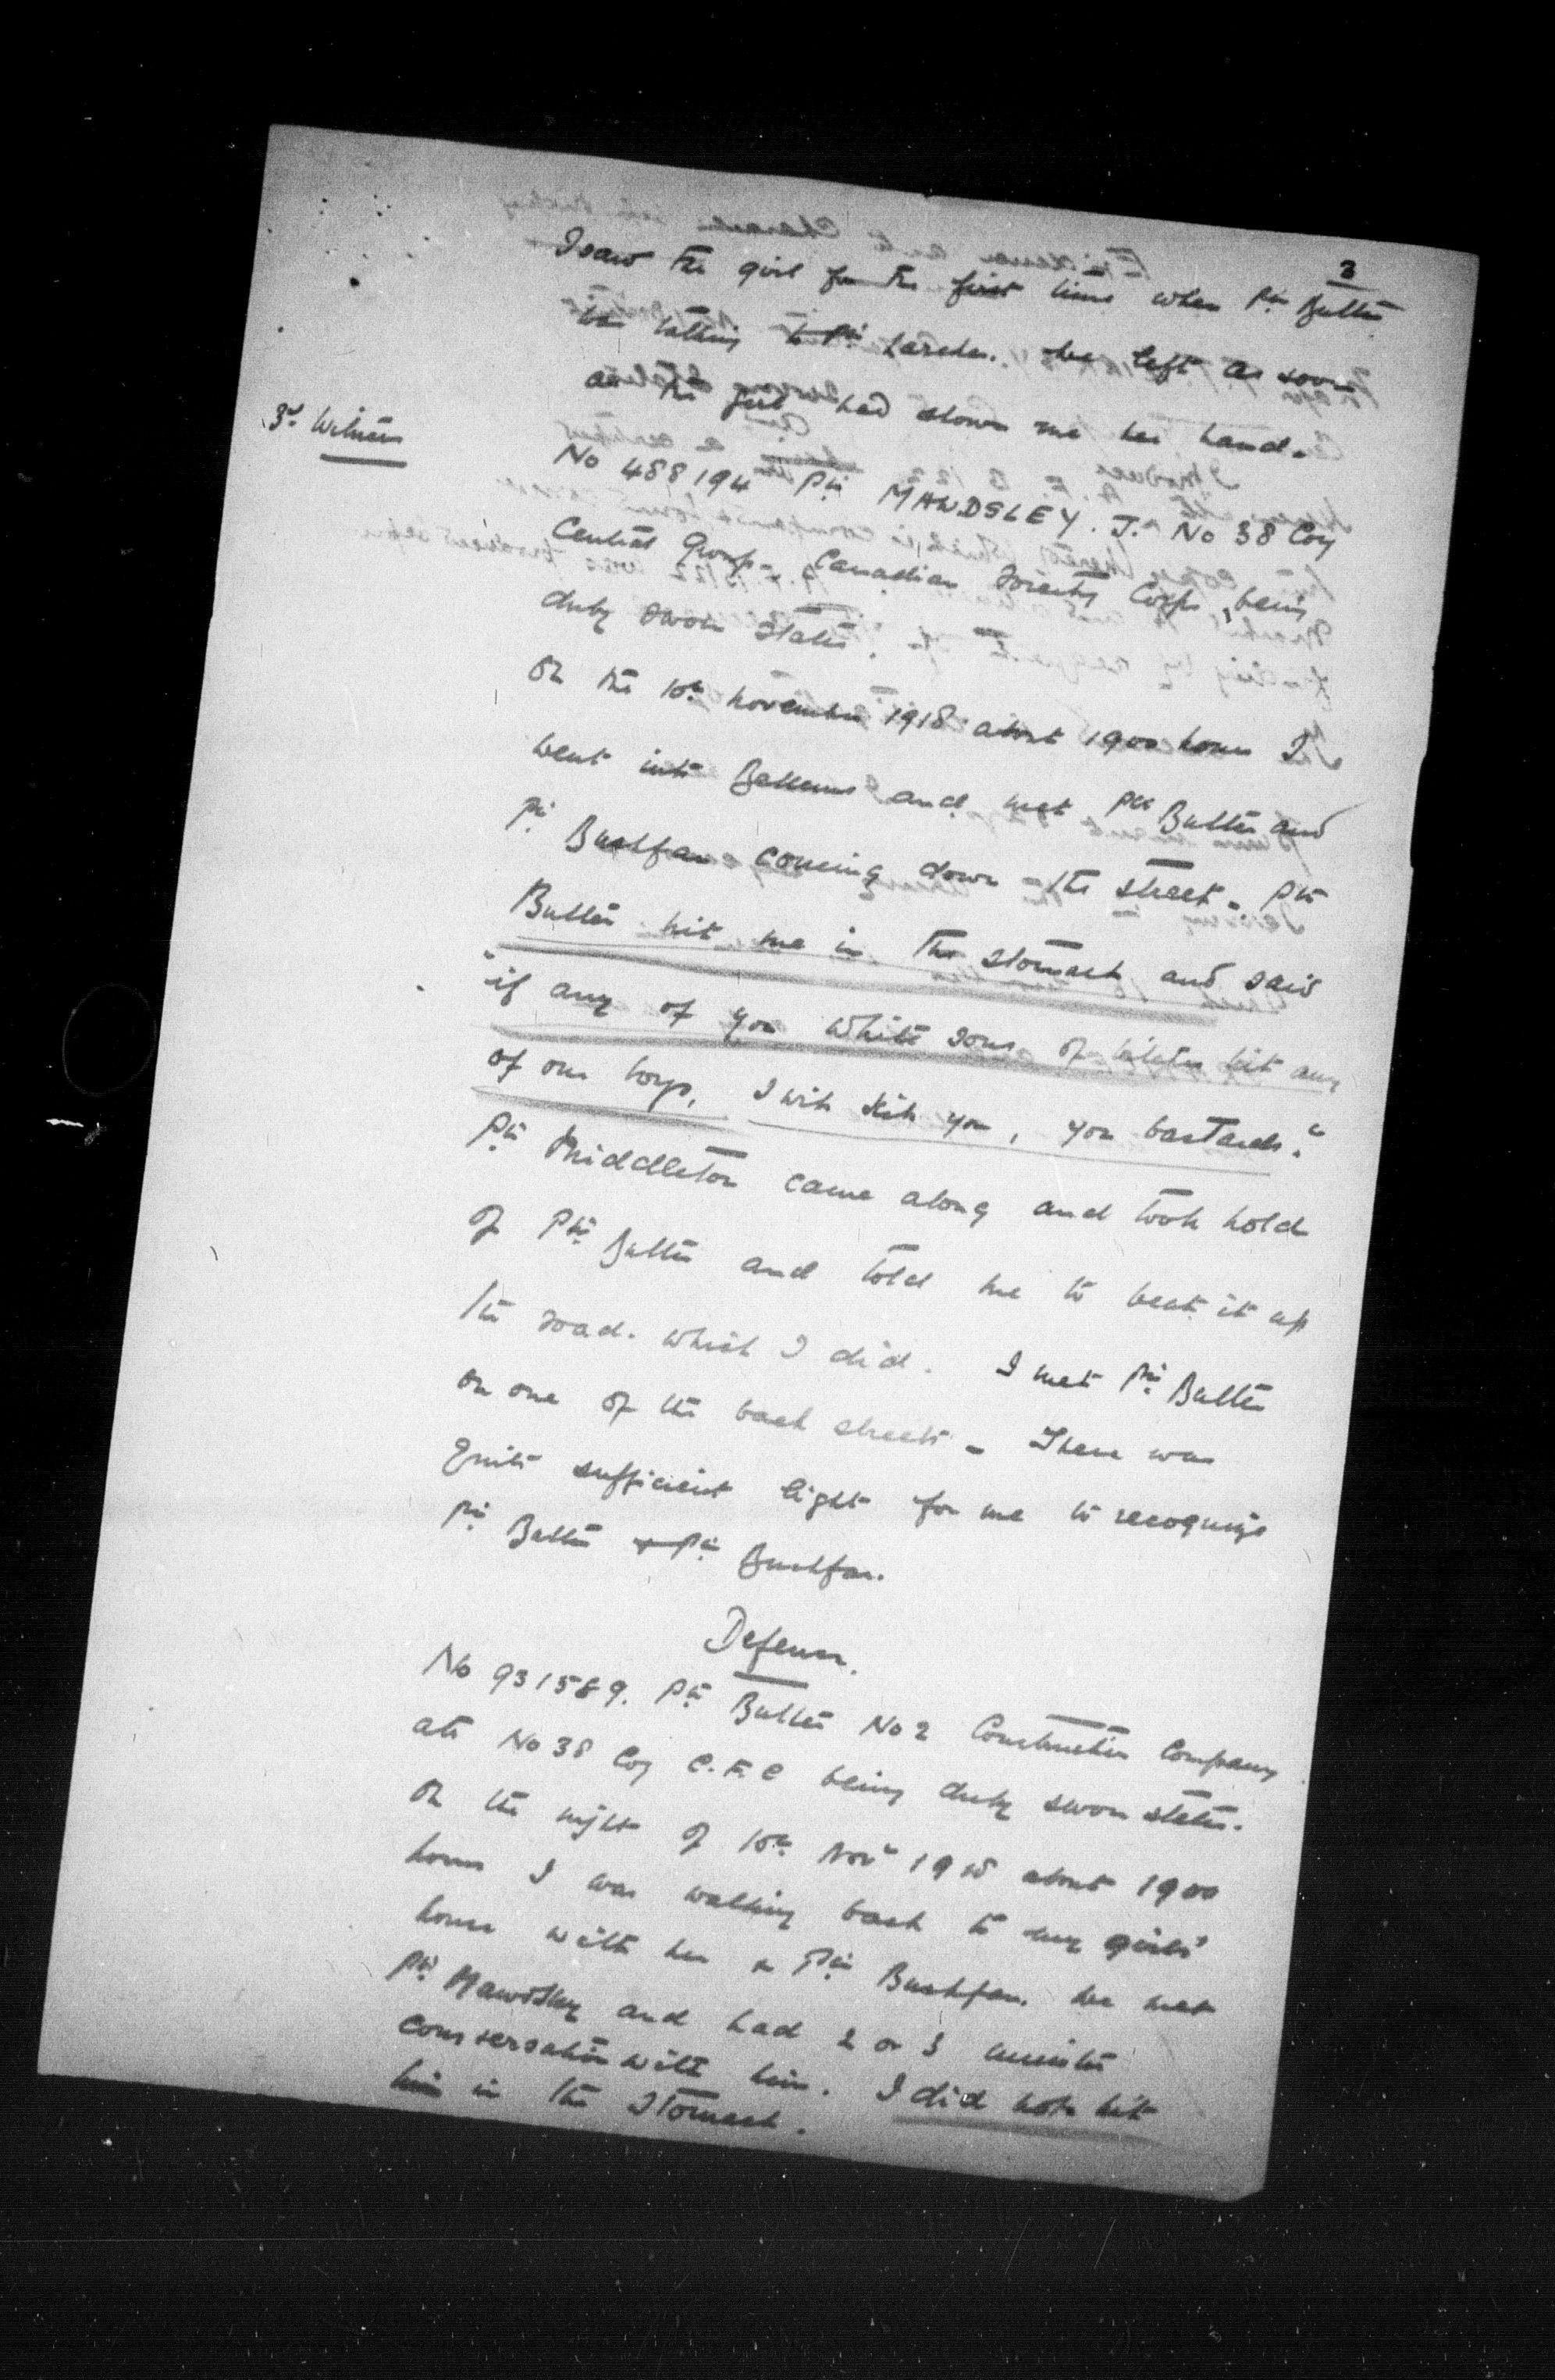 3
I saw the girl for the first time when Pte Butler
was talking to Pte . We left as soon
as the girl had shown me her hand.
3rd Witness
No 488194 Pte MAWDSLEY. J. No 38 Coy
Central Group, Canadian Forestry Corps, being
duly sworn states.
On the 10th November 1918 about 1900 hours I
went into and met Pte Butler and
Pte Bushfan coming down the street. Pte
Butler hit me in the stomach and said
"if any of you white sons of bitches hit any
of our boys, I will kill you, you bastards."
Pte Middleton came along and took hold
of Pte Butler and told me to beat it up
the road. which I did. I met Pte Butler
on one of the back streets. There was
quite sufficient light for me to recognize
Pte Butler & Pte Bushfan.
Defence.
No 931589. Pte Butler No 2 Construction Company
att No 38 Coy C.F.C being duly sworn states.
On the night of 10th Novr 1918 about 1900
hours I was walking back to my girls'
house with her & Pte Bushfan. We met
Pte Mawdsley and had 2 or 3 minutes
conversation with him. I did not hit
him in the stomach.